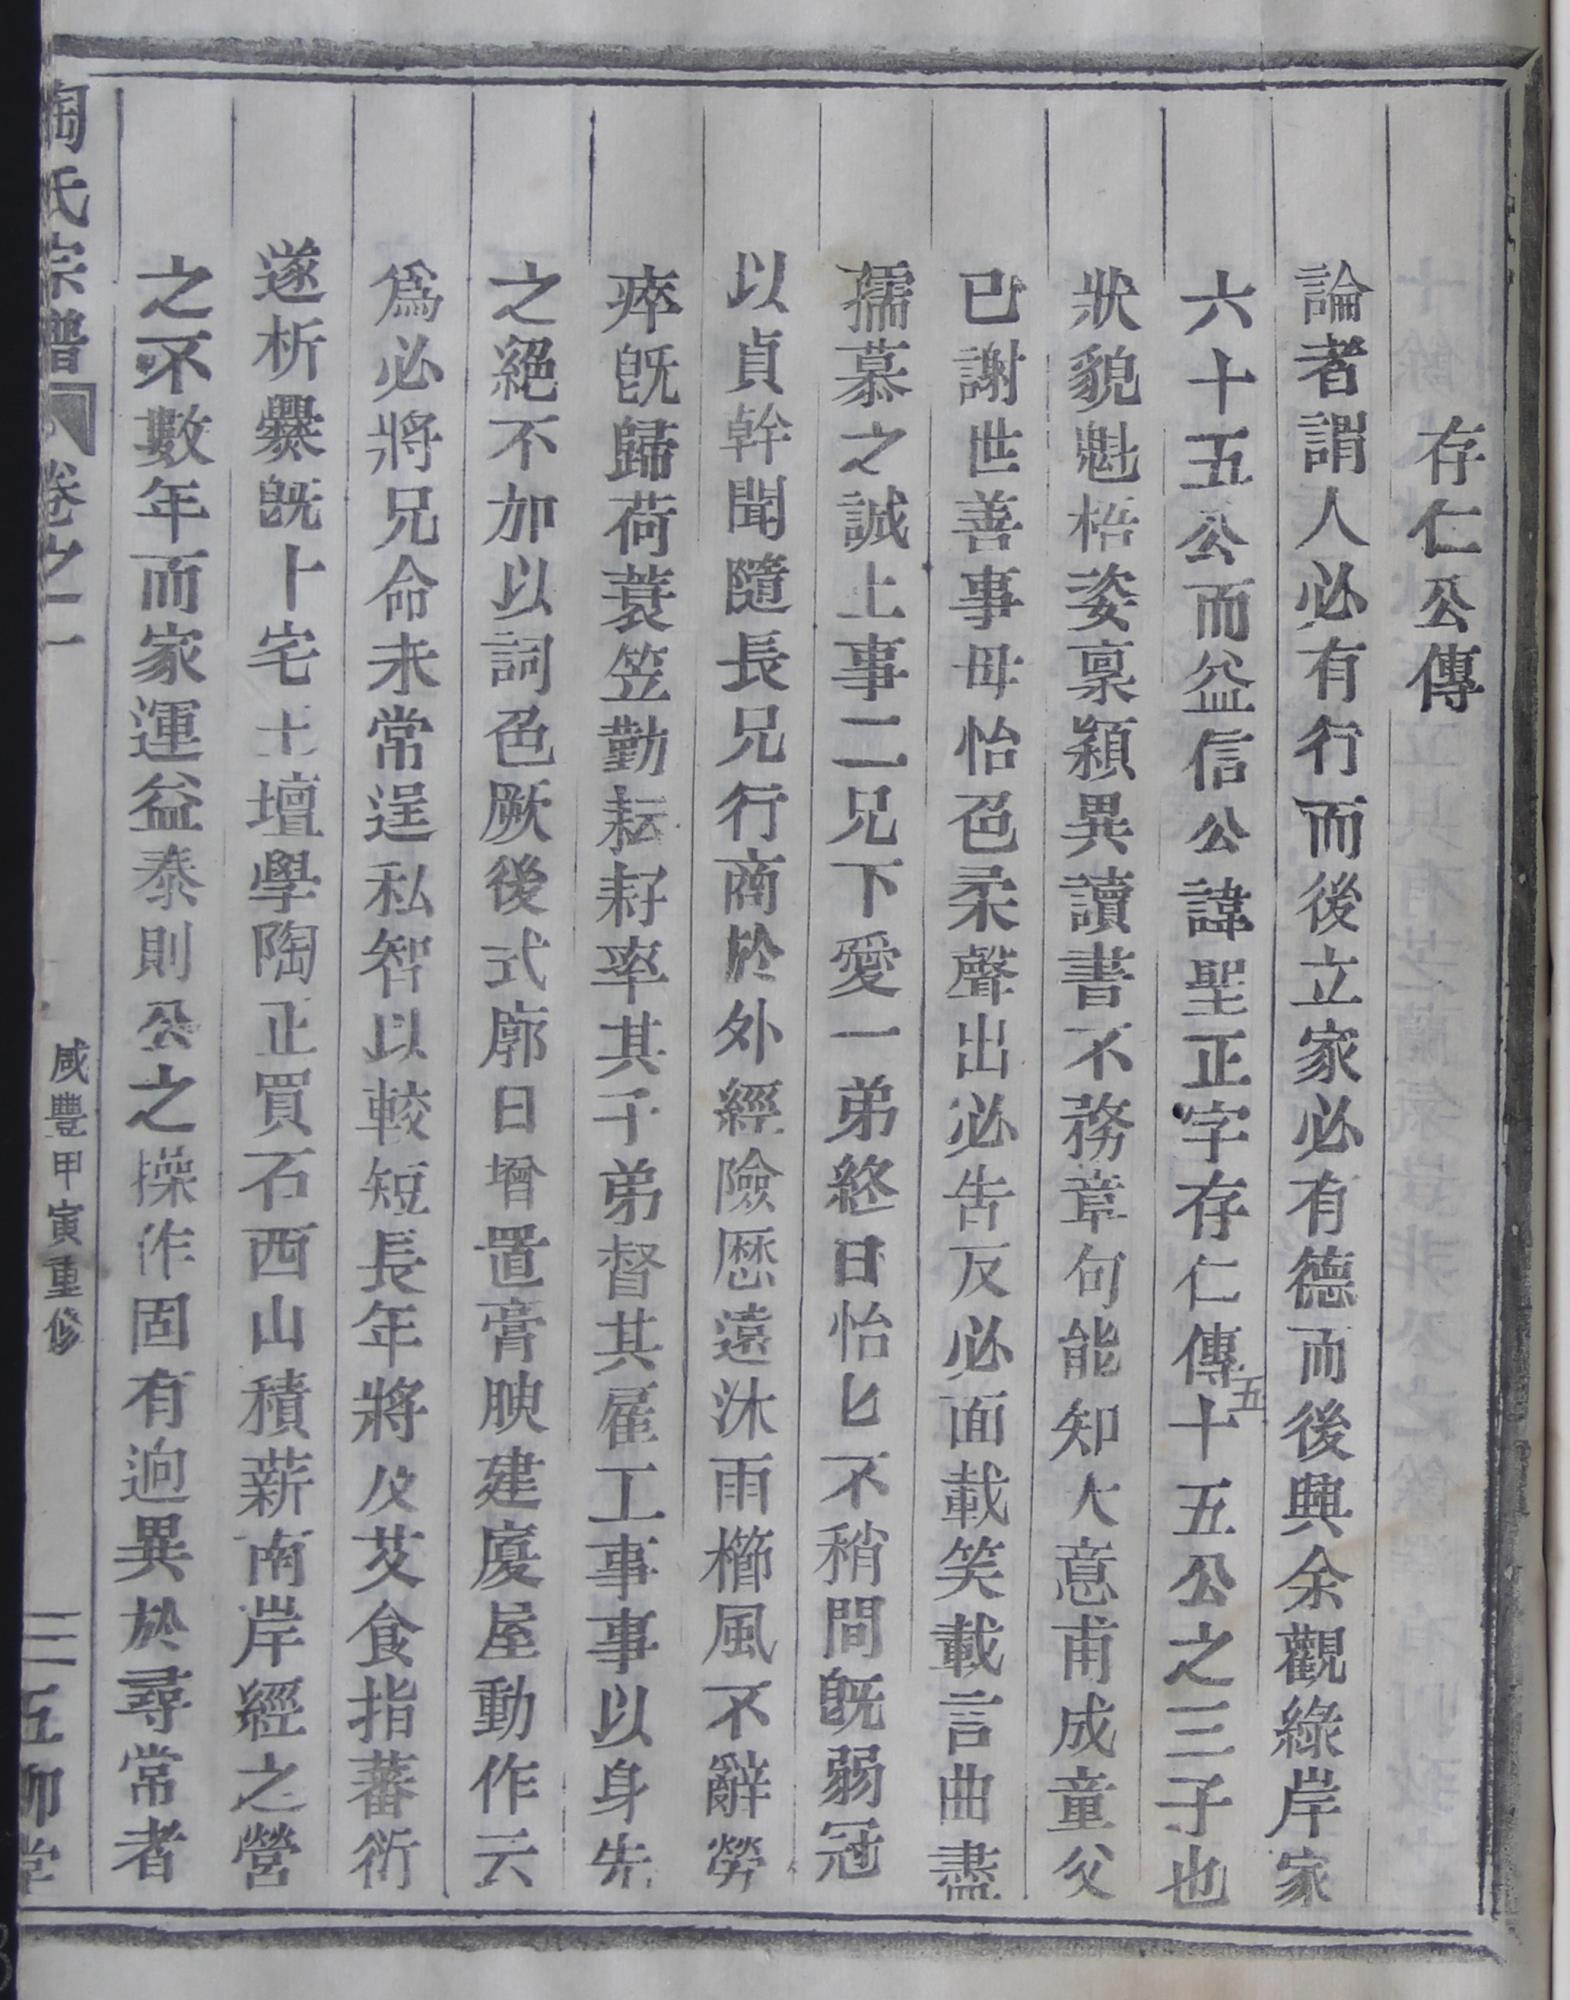 存仁公傳
論者謂人必有行而後立家必有德而後興余觀綠岸家
六十五公而益信公諱聖正字存仁傳五十五公之三子也
狀貌魁梧姿稟穎異讀書不務章句能知大意甫成童父
已謝世善事母怡色柔聲出必告反必面載笑載言曲盡
孺慕之誠上事二兄下愛一弟終日怡匕不稍間旣弱冠
以貞幹聞隨長兄行商於外經險歷遠沐雨櫛風不辭勞
瘁旣歸荷蓑笠勤耘耔率其子弟督其雇工事事以身先
之絕不加以詞色厥後式廓日增置膏腴建廈屋動作云
爲必將兄命未常逞私智以較短長年將及艾食指蕃衍
遂析爨旣卜宅土壇學陶正買石西山積薪南岸經之營
之不數年而家運益泰則公之操作固有逈異於尋常者
陶氏宗譜 卷之一 咸豐甲寅重修 三 五柳堂